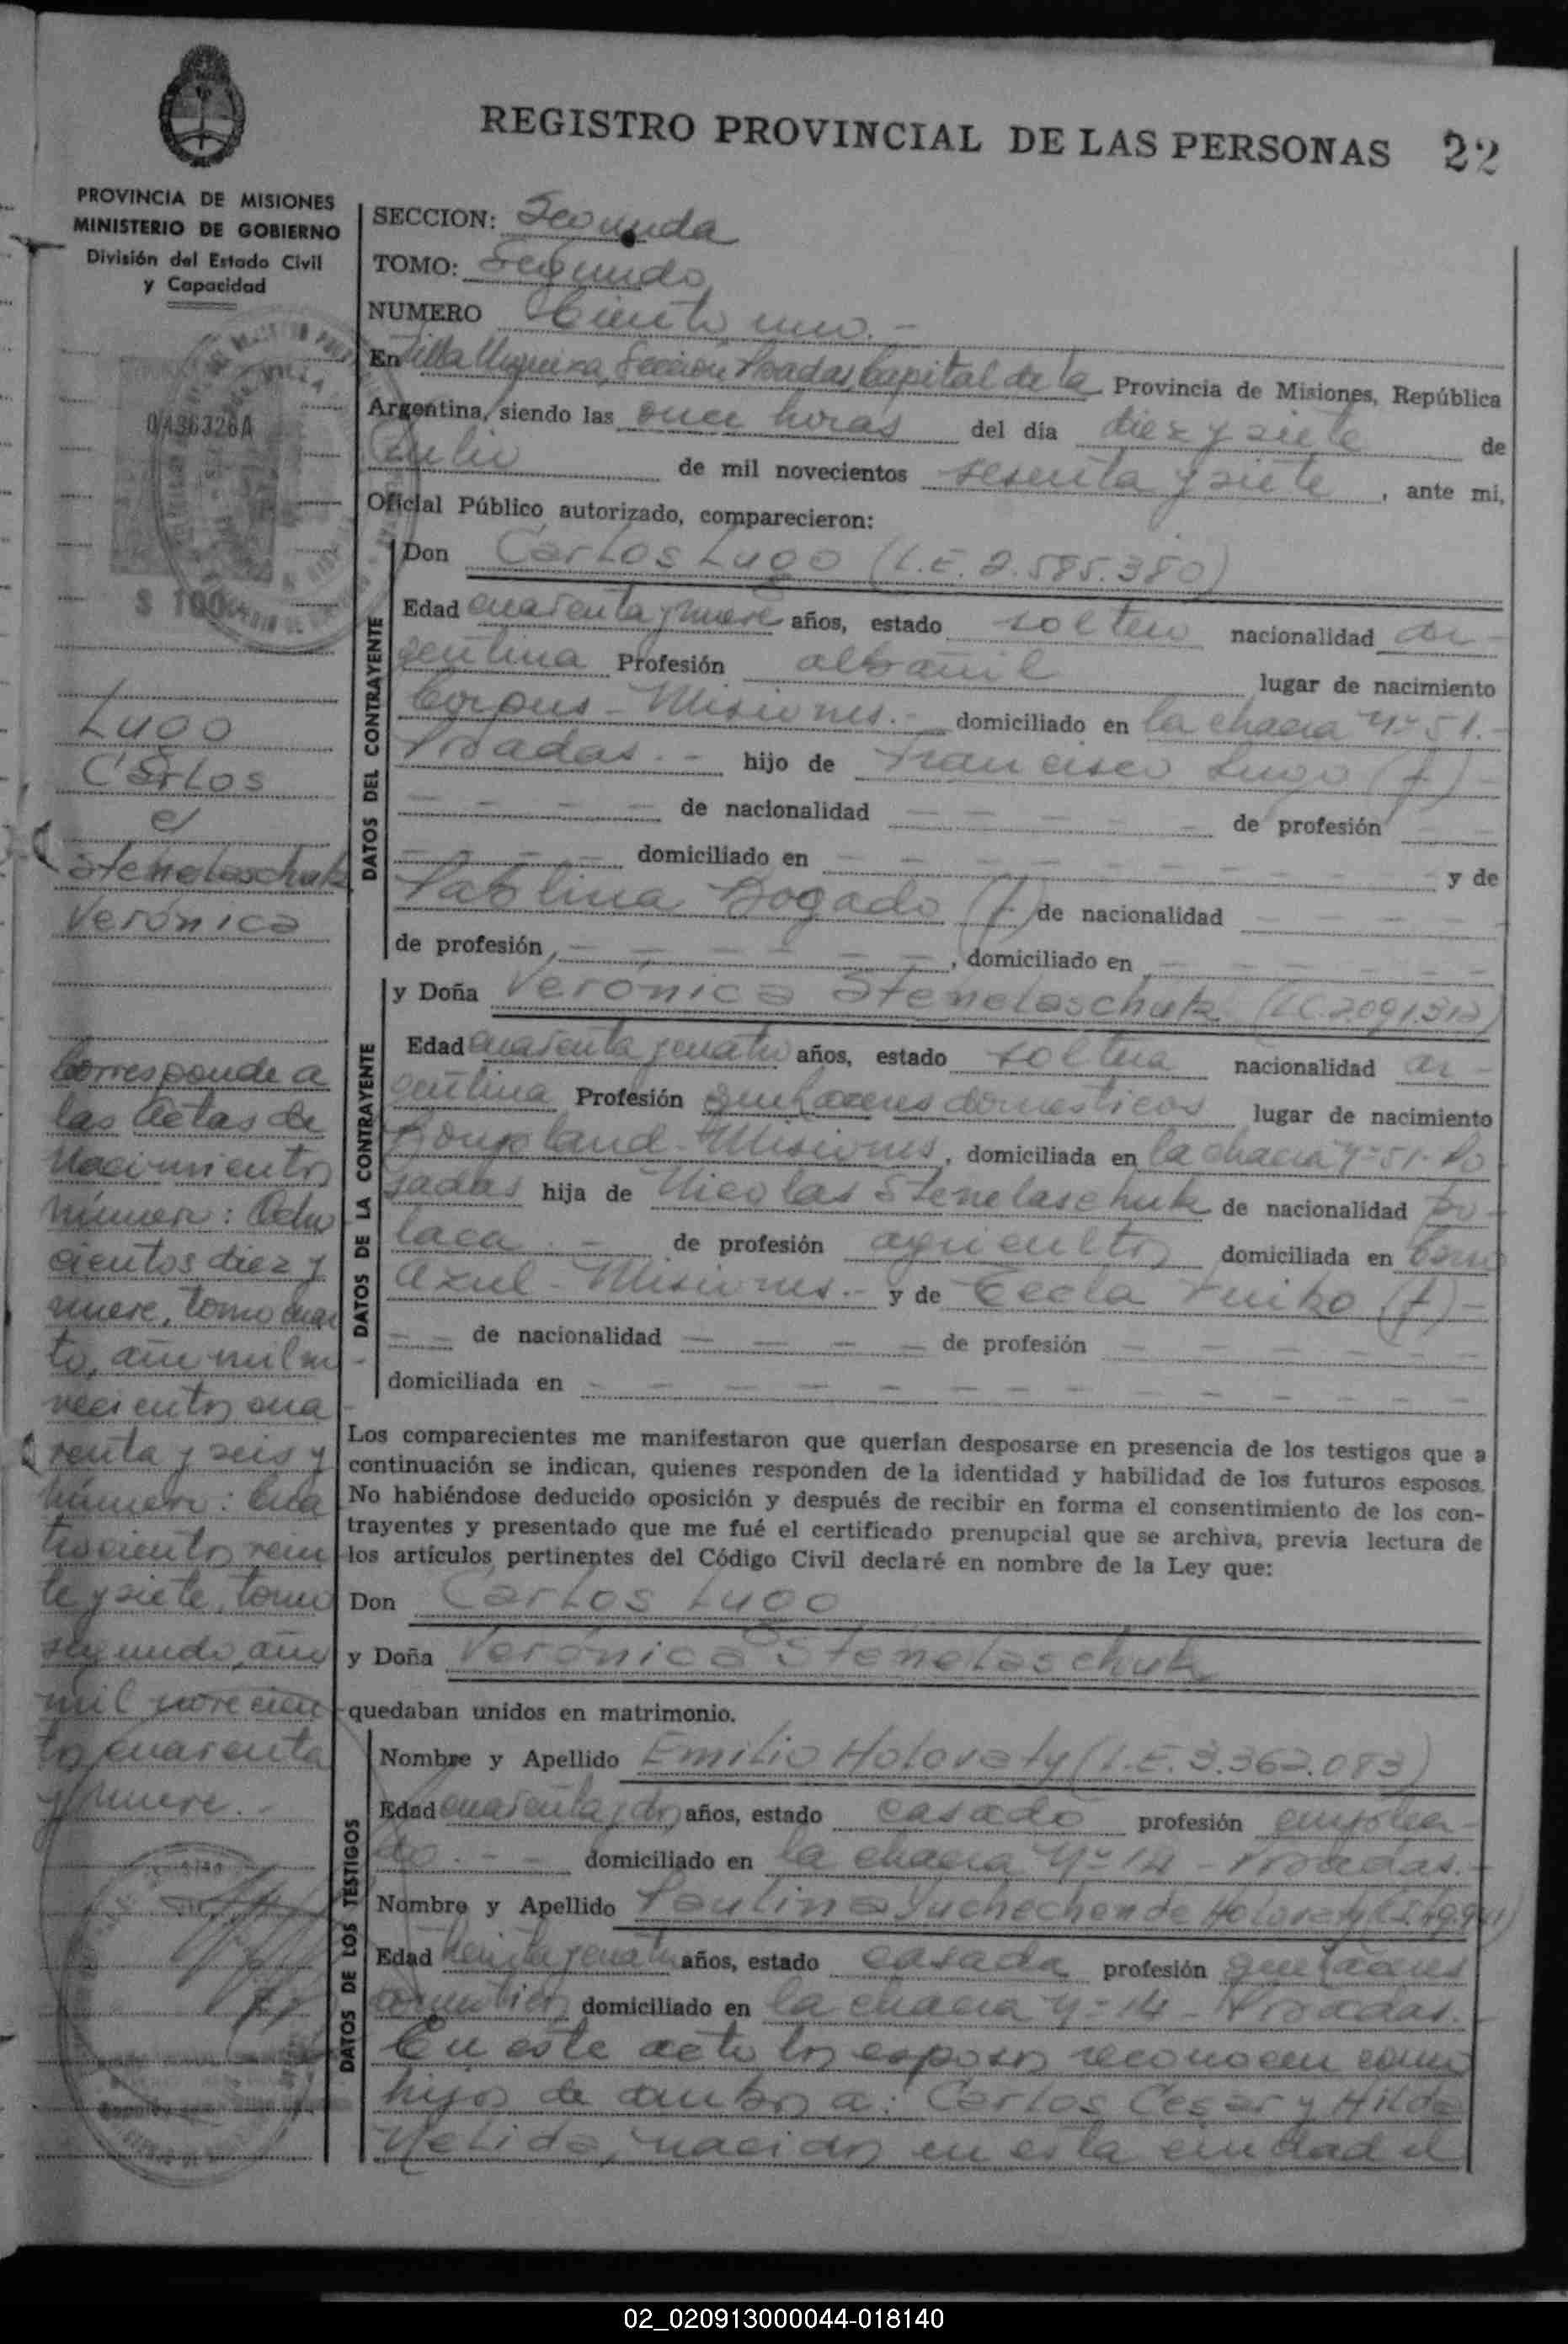 REGISTRO PROVINCIAL DE LAS PERSONAS 22
PROVINCIA DE MISIONES
MINISTERIO DE GOBIERNO
División del Estado Civil
y Capacidad
$ 100
Lugo
Carlos
c/
Stenelaschuk
Verónica
Corresponde a
las Actas de
Nacimientos
número: Ocho
cientos diez y
nueve, tomo cuar
to, año mil no
vecientos cua
renta y seis y
número: Cua
trocientos vein
te y siete, tomo
segundo, año
mil novecien
tos cuarenta
y nueve.-
SECCION: Segunda
TOMO: Segundo
NUMERO Ciento uno.-
En Villa Urquiza, Sección Posadas, Capital de la Provincia de Misiones, República
Argentina, siendo las once horas del día diez y siete de
Julio de mil novecientos sesenta y siete, ante mi,
Oficial Público autorizado, comparecieron:
DATOS DEL CONTRAYENTE
Don Carlos Lugo (I.E. 2.585.380)
Edad cuarenta y nueve años, estado soltero nacionalidad ar-
gentina Profesión albañil lugar de nacimiento
Corpus - Misiones.- domiciliado en la chacra Nº 51.-
Posadas.- hijo de Francisco Lugo (f)-
de nacionalidad de profesión
domiciliado en y de
Pablina Bogado (f) de nacionalidad
de profesión , domiciliado en
DATOS DE LA CONTRAYENTE
y Doña Verónica Stenelaschuk (LC.2.091.312)
Edad cuarenta y cuatro años, estado soltera nacionalidad ar-
gentina Profesión quehaceres domesticos lugar de nacimiento
Bonpland - Misiones, domiciliada en la chacra Nº 51- Po
sadas hija de Nicolas Stenelaschuk de nacionalidad po-
laca.- de profesión agricultor domiciliada en Cerro
Azul - Misiones.- y de Tecla (f)-
de nacionalidad de profesión
domiciliada en
Los comparecientes me manifestaron que querían desposarse en presencia de los testigos que a
continuación se indican, quienes responden de la identidad y habilidad de los futuros esposos.
No habiéndose deducido oposición y después de recibir en forma el consentimiento de los con-
trayentes y presentado que me fué el certificado prenupcial que se archiva, previa lectura de
los artículos pertinentes del Código Civil declaré en nombre de la Ley que:
Don Carlos Lugo
y Doña Verónica Stenelaschuk
quedaban unidos en matrimonio.
DATOS DE LOS TESTIGOS
Nombre y Apellido Emilio Holovaty (I.E. 3.362.083)
Edad cuarenta y dos años, estado casado profesión emplea-
do.- domiciliado en la chacra Nº 14 - Posadas.-
Nombre y Apellido Paulina de Holovaty
Edad treinta y cuatro años, estado casada profesión quehaceres
domesticos domiciliado en la chacra Nº 14 - Posadas.
En este acto los esposos reconocen como
hijos de ambos a: Carlos Cesar y Hilda
Nelida, nacidos en esta ciudad el
02_020913000044-018140